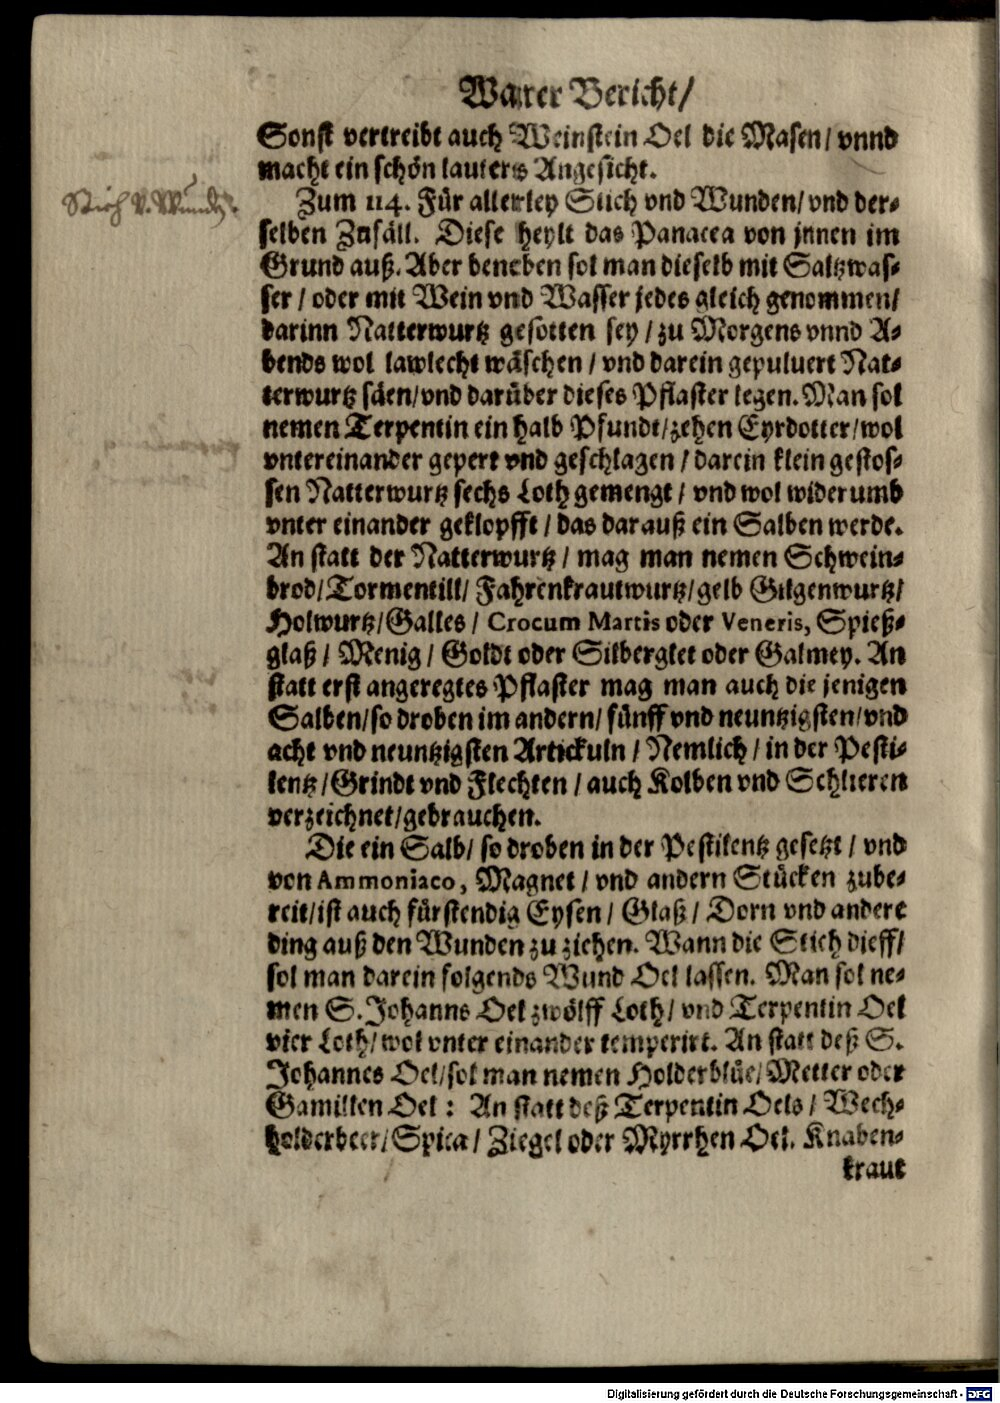 Warer Bericht/
Sonst vertreibt auch Weinstein Oel die Masen/ vnnd
macht ein schön lauters Angesicht.
Stich v. Wunden.
Zum 114. Für allerley Stich vnd Wunden/ vnd der-
selben Zufäll. Diese heylt das Panacea von jnnen im
Grund auß. Aber beneben sol man dieselb mit Saltzwas-
ser / oder mit Wein vnd Wasser jedes gleich genommen/
darinn Natterwurtz gesotten sey / zu Morgens vnnd A-
bends wol lawlecht wäschen / vnd darein gepuluert Nat-
terwurtz säen/ vnd darüber dieses Pflaster legen. Man sol
nemen Terpentin ein halb Pfundt/ zehen Eyrdotter/ wol
vntereinander gepert vnd geschlagen / darein klein gestos-
sen Natterwurtz sechs Loth gemengt / vnd wol widerumb
vnter einander geklopfft / das darauß ein Salben werde.
An statt der Natterwurtz / mag man nemen Schwein-
brod/ Tormentill/ Fahrenkrautwurtz/ gelb Gilgenwurtz/
Holwurtz/ Galles / Crocum Martis oder Veneris, Spieß-
glaß / Menig / Goldt oder Silberglet oder Galmey. An
statt erst angeregtes Pflaster mag man auch die jenigen
Salben/ so droben im andern/ fünff vnd neuntzigsten/ vnd
acht vnd neuntzigsten Artickuln / Nemlich / in der Pesti-
lentz / Grindt vnd Flechten / auch Kolben vnd Schlieren
verzeichnet/ gebrauchen.
Die ein Salb/ so droben in der Pestilentz gesetzt / vnd
von Ammoniaco, Magnet / vnd andern Stücken zube-
reit/ ist auch fürstendig Eysen / Glaß / Dorn vnd andere
ding auß den Wunden zu ziehen. Wann die Stich dieff/
sol man darein folgends Wund Oel lassen. Man sol ne-
men S. Johanns Oel zwölff Loth/ vnd Terpentin Oel
vier Loth/ wol vnter einander temperirt. An statt deß S.
Johannes Oel/ sol man nemen Holderblüe/ Metter oder
Gamillen Oel : An statt deß Terpentin Oels / Wech-
holderbeer/ Spica / Ziegel oder Myrrhen Oel. Knaben-
kraut
Digitalisierung gefördert durch die Deutsche Forschungsgemeinschaft - DFG